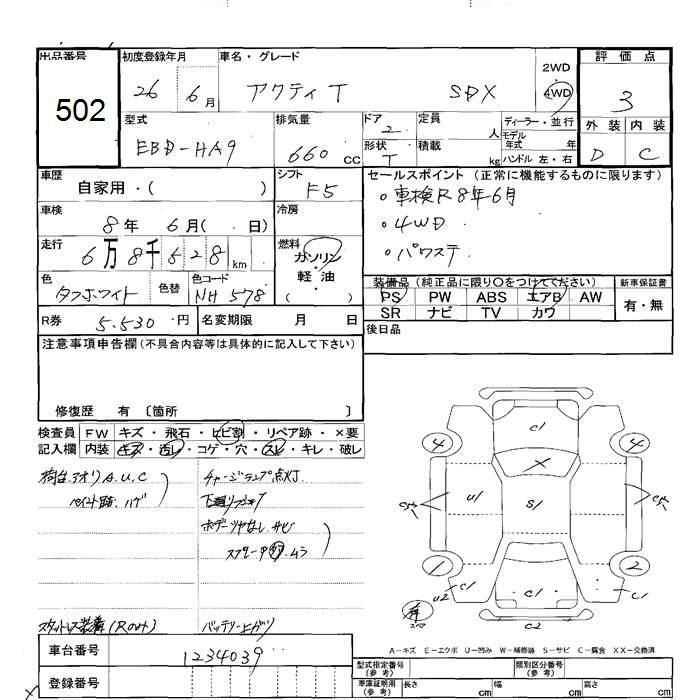 出品番号 初度登録年月 車名・グレード 2WD 評価点
502 26 6月 アクティT SDX 4WD 3
型式 排気量 ドア 定員 ディーラー・並行 外装 内装
EBD-HA9 660 CC 2 人 モデル年式 年 D C
形状 積載
T kg ハンドル 左・右
車歴 シフト セールスポイント (正常に機能するものに限ります)
自家用・( ) F5 。車検R8年6月
車検 冷房
8年 6月( . 日) 。4WD
走行 燃料
6万8千528km ガソリン 。パワステ
・
色 色替 色コード 軽・油 装備品(純正品に限り○をつけてください) 新車保証書
タフホワイト NH 578 ( ) PS PW ABS エアB AW 有・無
R券 5.530円 名変期限 月 日 SR ナビ TV カワ
注意事項申告欄(不具合内容等は具体的に記入して下さい) 後日品
修復歴 有 〔箇所 〕
検査員 FW キズ・飛石・ヒビ割・リペア跡・×要
記入欄 内装 キズ・汚レ・コゲ・穴・スレ・キレ・破レ
荷台.アオリ A.U.C チャージランプ点灯
ペイント跡.ハゲ 下廻り
ボデーツヤなし.サビ
ムラ
スタットレス装着(Rのみ) バッテリー上がり
C1
4 4
X
U1 S1
1 2
U2 C1 C1 C1
C2
有
スペア
A－キズ E－エクボ U－凹み W－補修跡 S－サビ C－腐食 XX－交換済
車台番号 1234039 型式指定番号(参考) 類別区分番号(参考)
登録番号 車庫証明用(参考) 長さ cm 幅 cm 高さ cm